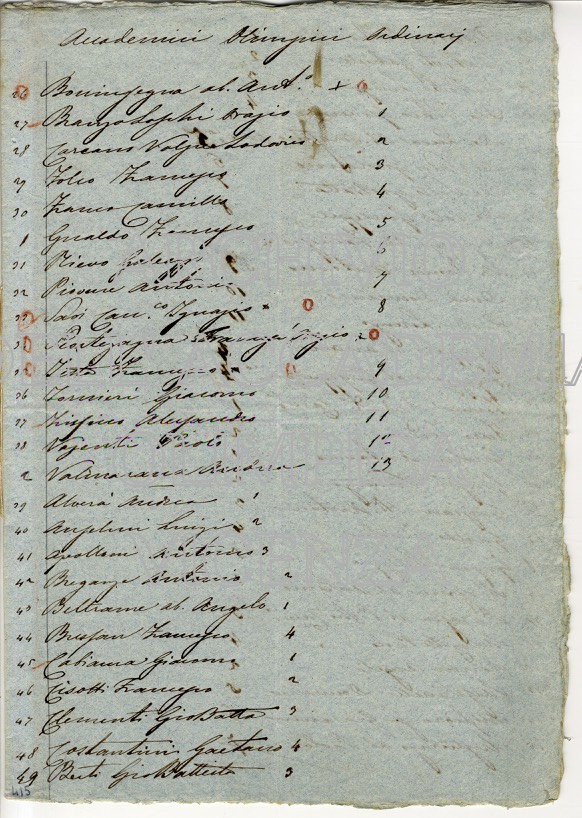 Accademici Olimpici Ordinarj
26 Boninsegna ab. Ant.o + 0
27 Branzo Loschi Orazio 1
28 Carcano Volpe Lodovico 2
29 Folco Francesco 3
30 Franco Camillo 4
1 Gualdo Francesco 5
31 Nievo 6
32 Piovene Antonio 7
33 Savi Can.co Ignazio 0 8
34 0
35 Testa Francesco 0 9
36 Tornieri Giacomo 10
37 Trissino Alessandro 11
38 Vajenti Paolo 12
2 Valmarana 13
39 Alverà Andrea 1
40 Anselmi Luigi 2
41 Apolloni Antonio 3
42 Breganze Antonio 2
43 Beltrame ab. Angelo 1
44 Bressan Francesco 4
45 Cabianca Giacomo 1
46 Cisotti Francesco 2
47 Clementi Gio Batta 3
48 Costantini Gaetano 4
49 Berti Gio Battista 3
415